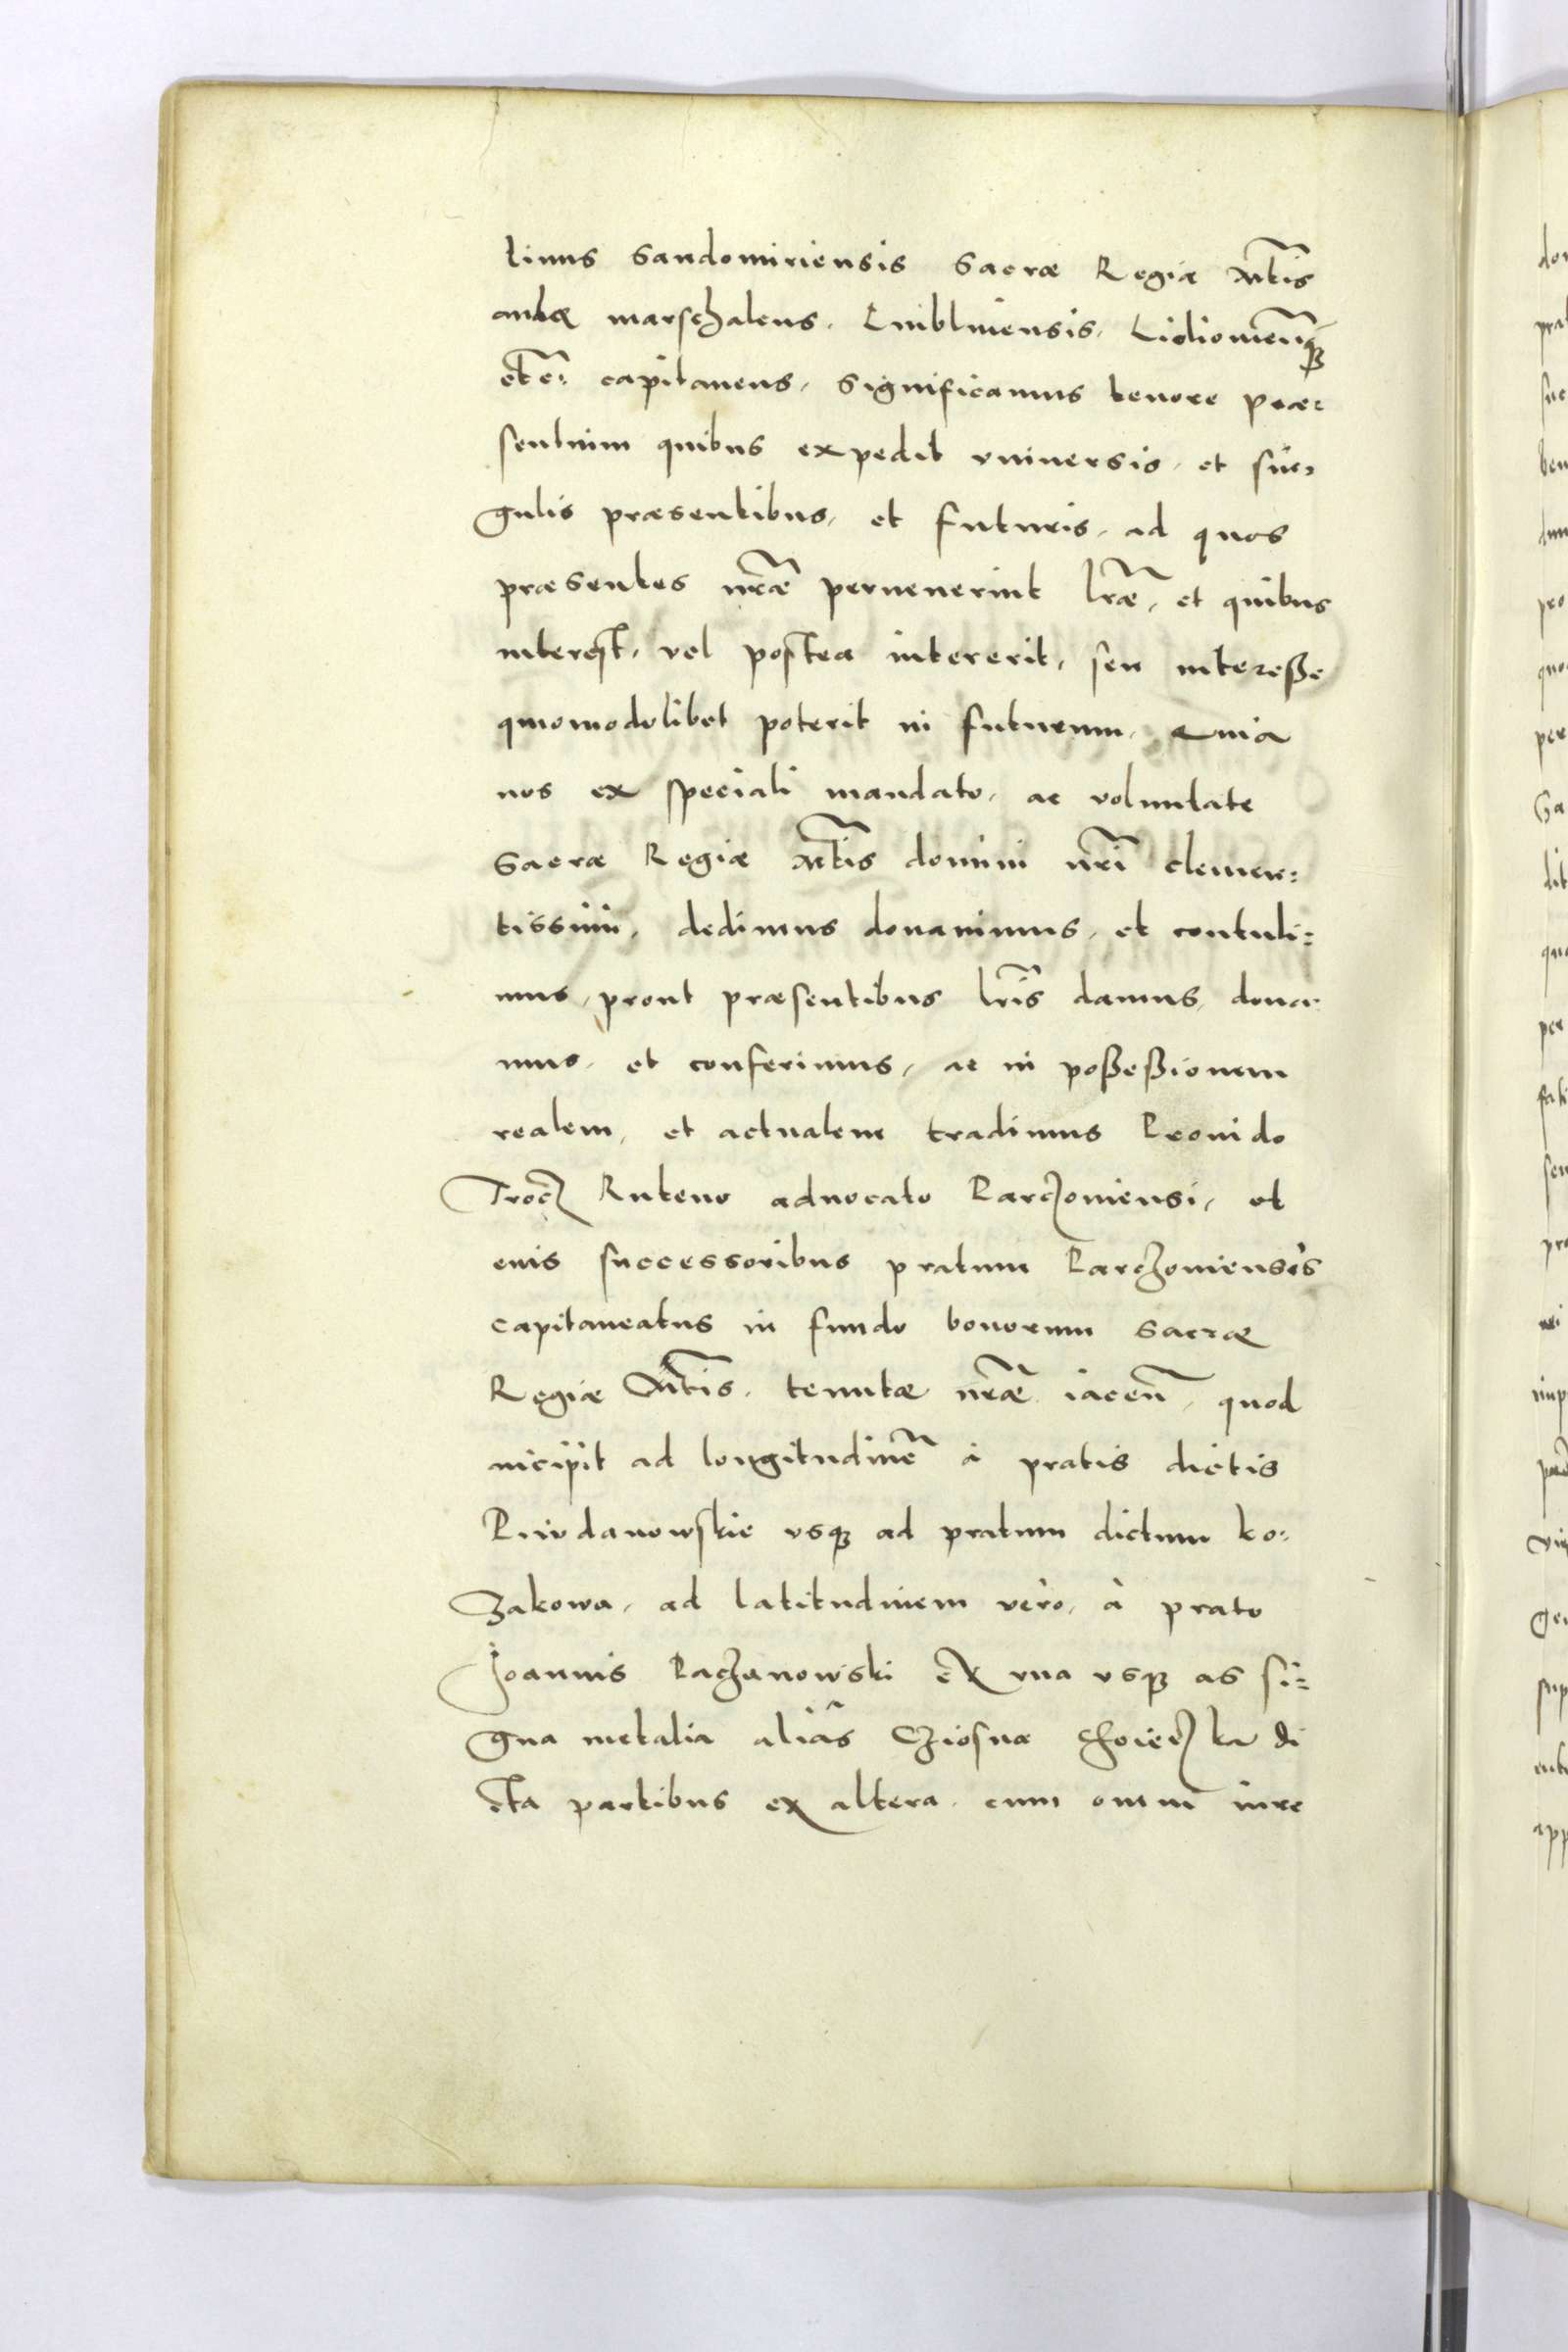 linus Sandomiriensis Sacræ Regiæ Mt̃is
aulæ marschalcus. Lublinensis. 
etc̃: capitaneus, significamus tenore præ:
sentium quibus expedit vniuersis, et sin:
gulis præsentibus, et futuris, ad quos
præsentes nr̃æ peruenerint lr̃æ, et quibus
interest, vel postea intererit, seu interesse
quomodolibet poterit in futurum, Quia
nos ex speciali mandato, ac voluntate
Sacræ Regiæ Mt̃is domini nr̃i clemen:
tissimi, dedimus donauimus, et contuli:
mus, prout præsentibus lr̃is damus, dona:
mus, et conferimus, ac in possessionem
realem, et actualem tradimus 
Trocz Ruteno aduocato Parczouiensi, et
euis successoribus pratum Parczouiensis
capitaneatus in fundo bonorum Sacræ
Regiæ Mt̃is. tenutæ nr̃æ iaceñ, quod
incipit ad longitudinẽ à pratis dictis
usq3 ad pratum dictum ko:
zakowa, ad latitudinem verò, à prato
Joannis Paczanowski ex vna usq3 as si:
gna metalia aliàs Cziosna di
cta partibus ex altera. cum omni iure